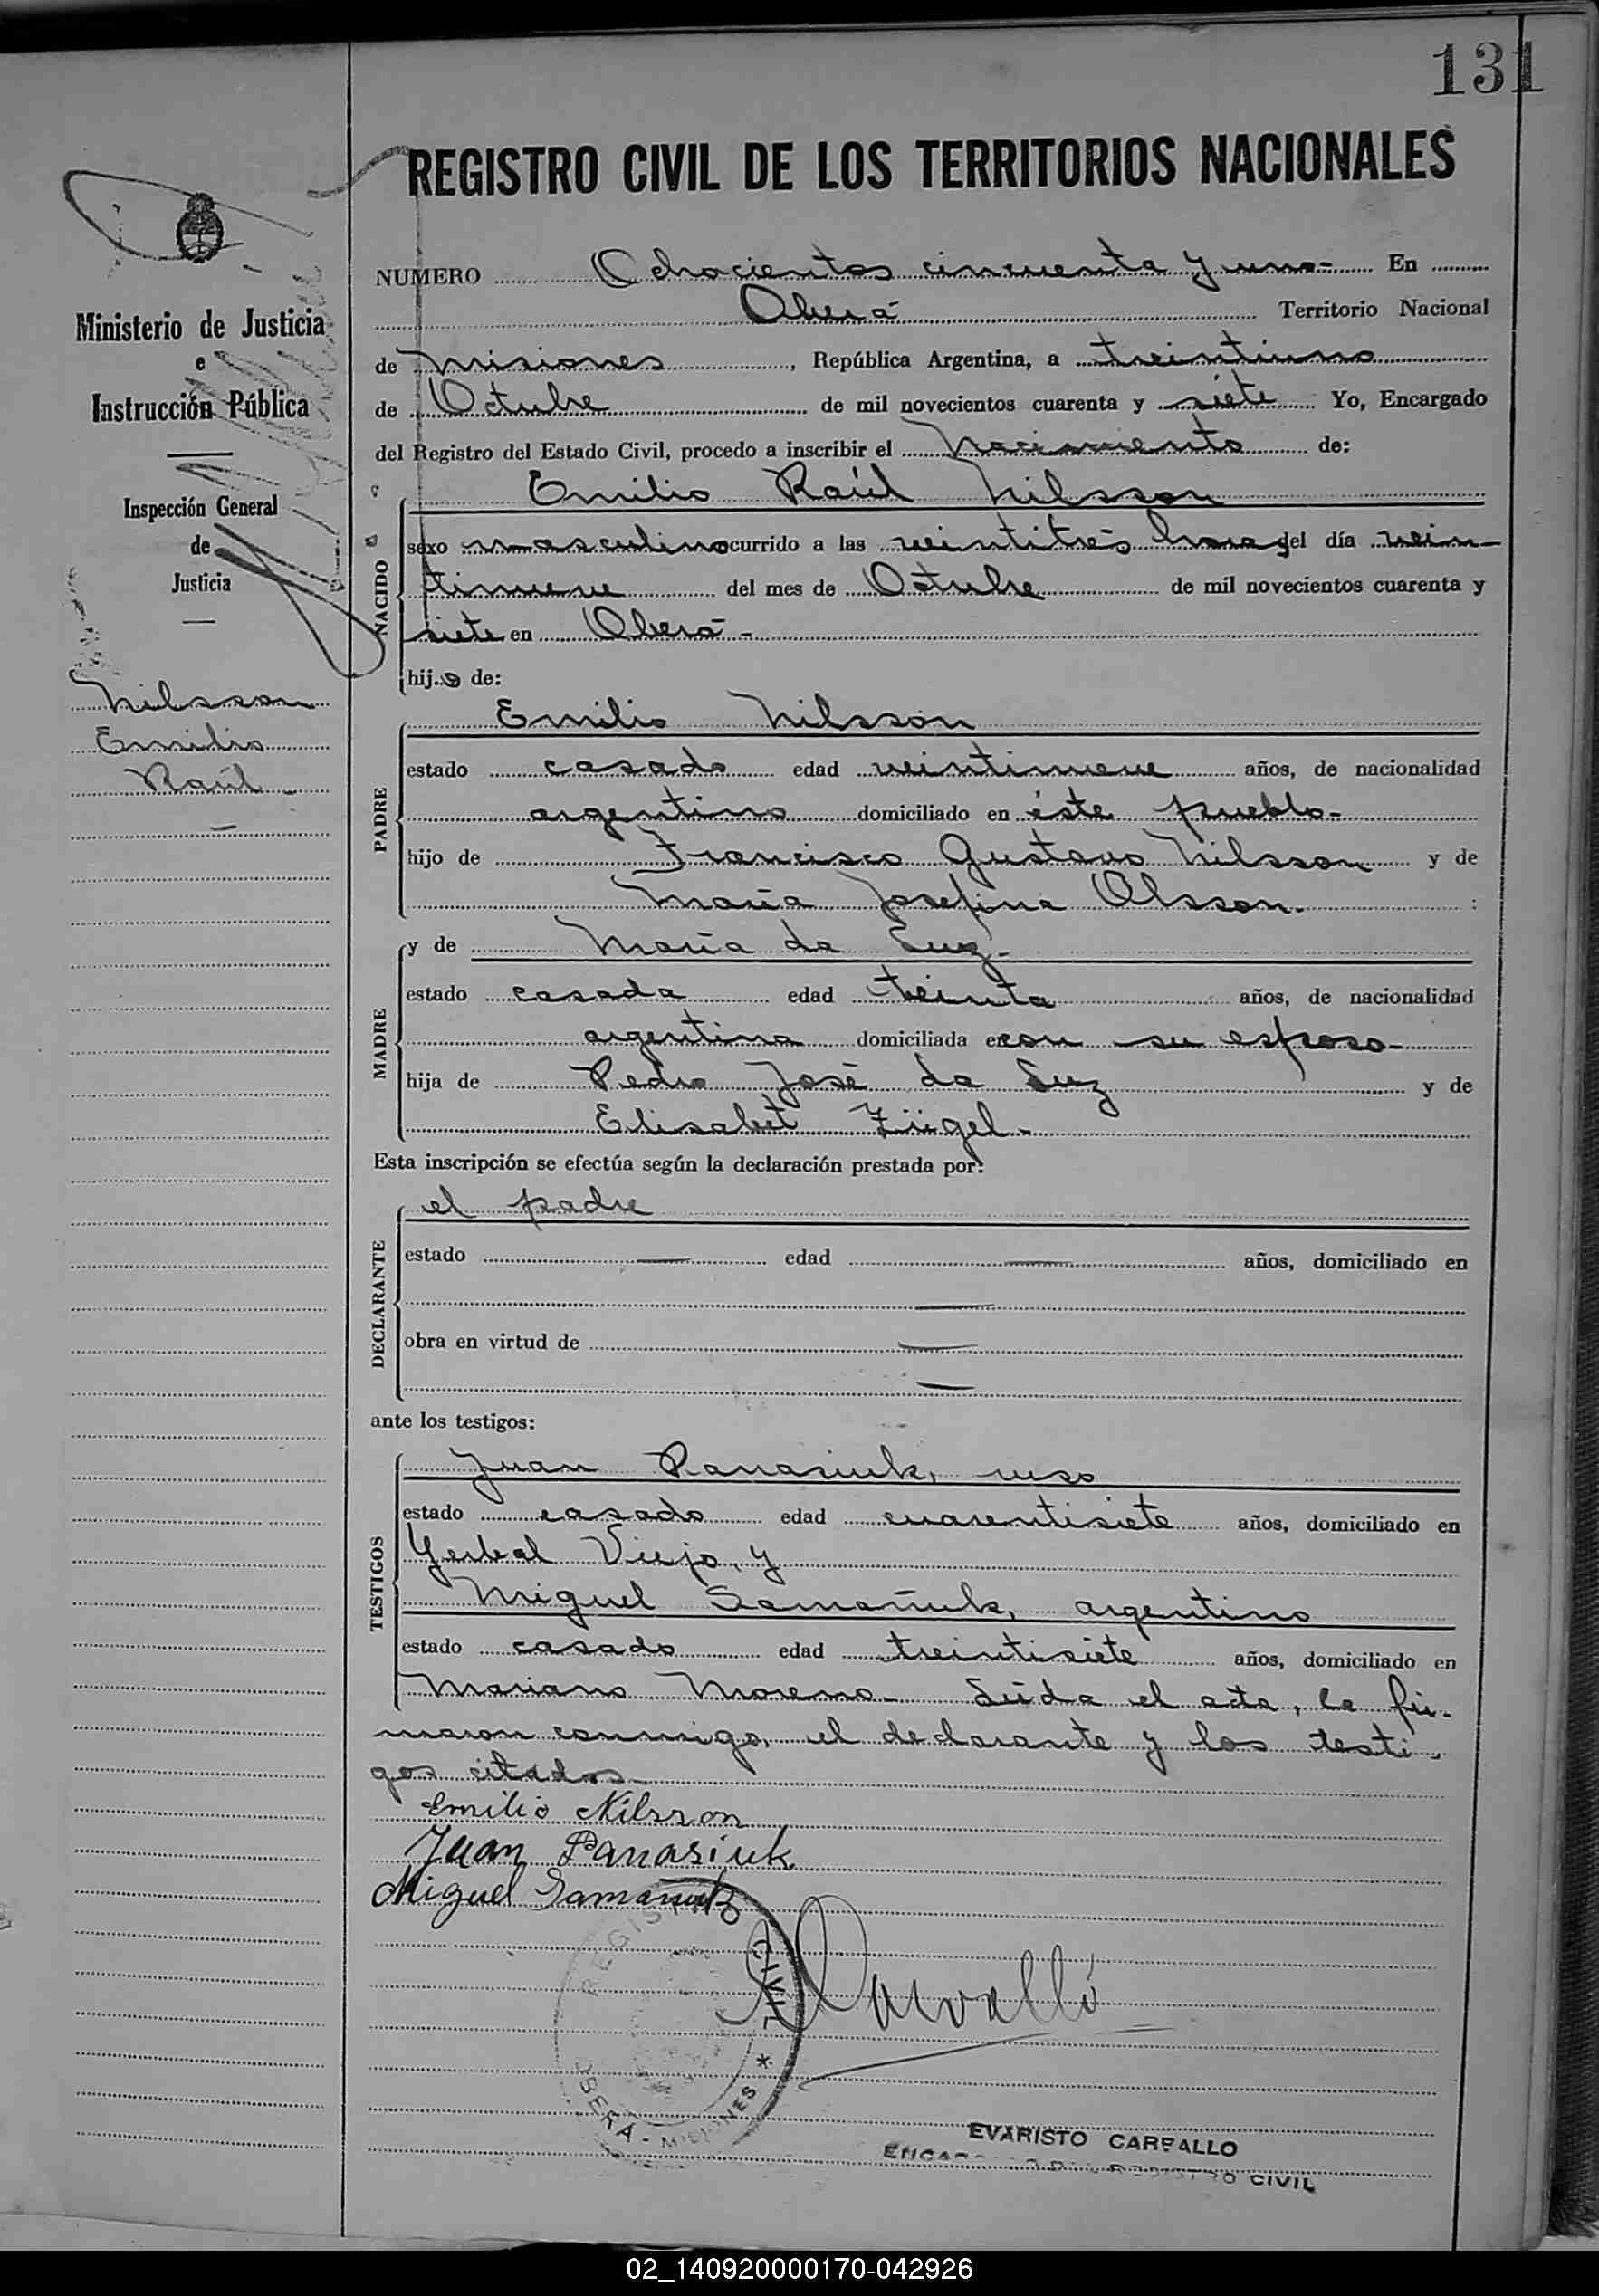 131
REGISTRO CIVIL DE LOS TERRITORIOS NACIONALES
Ministerio de Justicia
e
Instrucción Pública
Inspección General
de
Justicia
Nilsson
Emilio
Raúl
NUMERO Ochocientos cincuenta y uno- En
Oberá Territorio Nacional
de Misiones, República Argentina, a treintiuno
de Octubre de mil novecientos cuarenta y siete Yo, Encargado
del Registro del Estado Civil, procedo a inscribir el Nacimiento de:
NACIDO
Emilio Raúl Nilsson
sexo masculino ocurrido a las veintitrés horas del día vein-
tinueve del mes de Octubre de mil novecientos cuarenta y
siete en Oberá-
hijo de:
PADRE
Emilio Nilsson
estado casado edad veintinueve años, de nacionalidad
argentino domiciliado en éste pueblo-
hijo de Francisco Gustavo Nilsson y de
María Josefina Olsson- :
MADRE
y de María da Luz-
estado casada edad treinta años, de nacionalidad
argentina domiciliada con su esposo-
hija de Pedro José da Luz y de
Elisabet Zügel-
Esta inscripción se efectúa según la declaración prestada por:
DECLARANTE
el padre
estado — edad — años, domiciliado en
—
obra en virtud de —
—
ante los testigos:
TESTIGOS
Juan Panasiuk, ruso
estado casado edad cuarentisiete años, domiciliado en
Yerbal Viejo, y
Miguel Samañuk, argentino
estado casado edad treintisiete años, domiciliado en
Mariano Moreno- Leída el acta, la fir-
maron conmigo, el declarante y los testi-
gos citados-
Emilio Nilsson
Juan Panasiuk
Miguel Samañuk
Carvallo
REGISTRO CIVIL * OBERA - MISIONES
EVARISTO CARBALLO
ENCARGADO DEL REGISTRO CIVIL
02_140920000170-042926